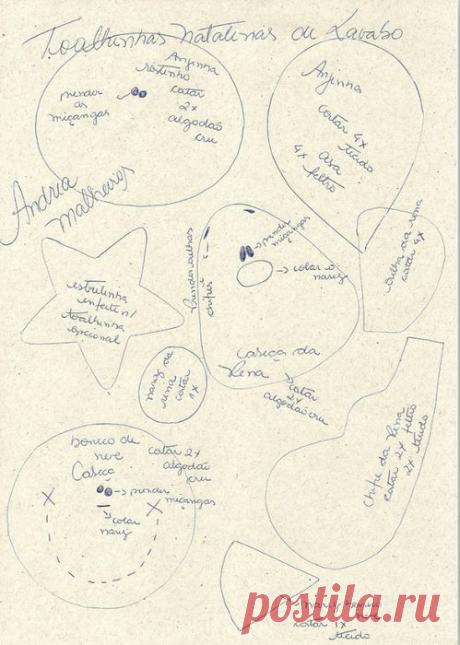 Toalhinhas natalinas de Lavabo
Anjinha
rostinho
cortar
2x
algodão
cru
prender
as
miçangas
Anjinha
cortar 4x
tecido
Asa
4x feltro
Andréa
Malheiros
estrelinha
enfeite p/
toalhinha
opcional
Prender orelhas
e
chifres
prender
miçangas
colar o
nariz
Cabeça da
Rena
cortar
2x
algodão cru
Orelha da rena
cortar 4x
nariz da
rena
cortar
1x
boneco de
neve
Cabeça
cortar 2x
algodão
cru
prender
miçangas
colar
nariz
Chifre da Rena
cortar 2x feltro
2x tecido
cortar 1x
tecido
postila.ru